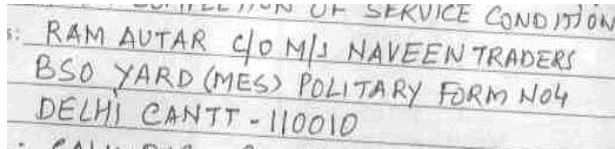 OF SERVICE CONDITION
s: RAM AUTAR C/O M/S NAVEEN TRADERS
BSO YARD (MES) POLITARY FORM NO4
DELHI CANTT - 110010